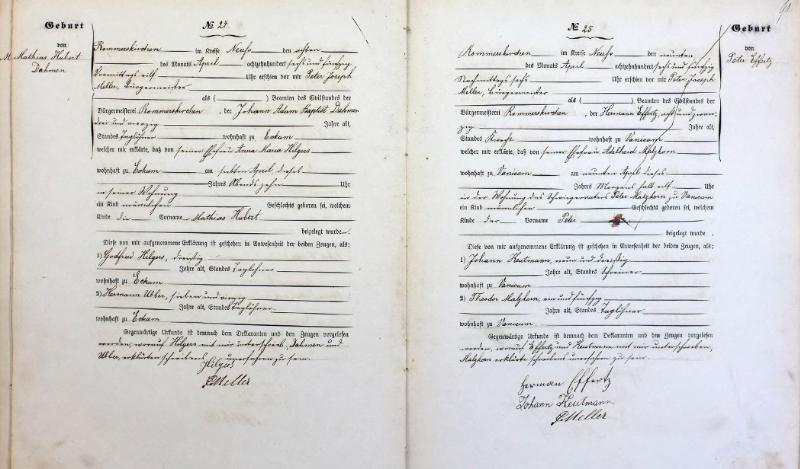 Geburt
von
M. Mathias Hubert
Dahmen
№ 24.
Rommerskirchen im Kreise Neuss den achten
des Monats April achtzehnhundert sechs und fünfzig
Vormittags elf Uhr erschien vor mir Peter Joseph
Meller, Bürgermeister
als ( ) Beamten des Civilstandes der
Bürgermeisterei Rommerskirchen, der Johann Adam Baptist Dahmen
drei und vierzig Jahre alt,
Standes Taglöhner wohnhaft zu Eckum
welcher mir erklärte, daß von seiner Ehefrau Anna Maria Hilgers
wohnhaft zu Eckum am siebten April dieses
Jahres Abends zehn Uhr
in seiner Wohnung
ein Kind männlichen Geschlechts geboren sei, welchem
Kinde die Vorname Mathias Hubert
beigelegt wurde.
Diese von mir aufgenommene Erklärung ist geschehen in Anwesenheit der beiden Zeugen, als:
1) Godfried Hilgers, dreißig
Jahre alt, Standes Taglöhner
wohnhaft zu Eckum
2) Hermann Ueber, sieben und vierzig
Jahre alt, Standes Taglöhner
wohnhaft zu Eckum
Gegenwärtige Urkunde ist demnach dem Deklaranten und den Zeugen vorgelesen
worden, worauf Hilgers mit mir unterschrieb, Dahmen und
Ueber, erklärten schreibens unerfahren zu sein.
Hilgers
P. Meller
№ 25
Geburt
von
Peter Effertz
Rommerskirchen im Kreise Neuss den neunten
des Monats April achtzehnhundert sechs und fünfzig
Nachmittags sechs Uhr erschien vor mir Peter Joseph
Meller, Bürgermeister
als ( ) Beamten des Civilstandes der
Bürgermeisterei Rommerskirchen, der Hermann Effertz, acht und zwan-
zig Jahre alt,
Standes Knecht wohnhaft zu Vanicum
welcher mir erklärte, daß von seiner Ehefrau Adelheid Malzkorn
wohnhaft zu Vanicum am neunten April dieses
Jahres Morgens halb elf Uhr
in der Wohnung des Schwiegervaters Peter Malzkorn zu Vanicum
ein Kind männlichen Geschlecht geboren sei, welchem
Kinde der Vorname Peter
beigelegt wurde.
Diese von mir aufgenommene Erklärung ist geschehen in Anwesenheit der beiden Zeugen, als:
1) Johann Heutmann, neun und dreißig
Jahre alt, Standes Schreiner
wohnhaft zu Vanicum
2) Theodor Malzkorn, ein und fünfzig
Jahre alt, Standes Taglöhner
wohnhaft zu Vanicum
Gegenwärtige Urkunde ist demnach dem Deklaranten und den Zeugen vorgelesen
worden, worauf Effertz und Heutmann mit mir unterschrieben,
Malzkorn erklärte schreibens unerfahren zu sein.
Herman Effertz
Johann Heutmann
P. Meller